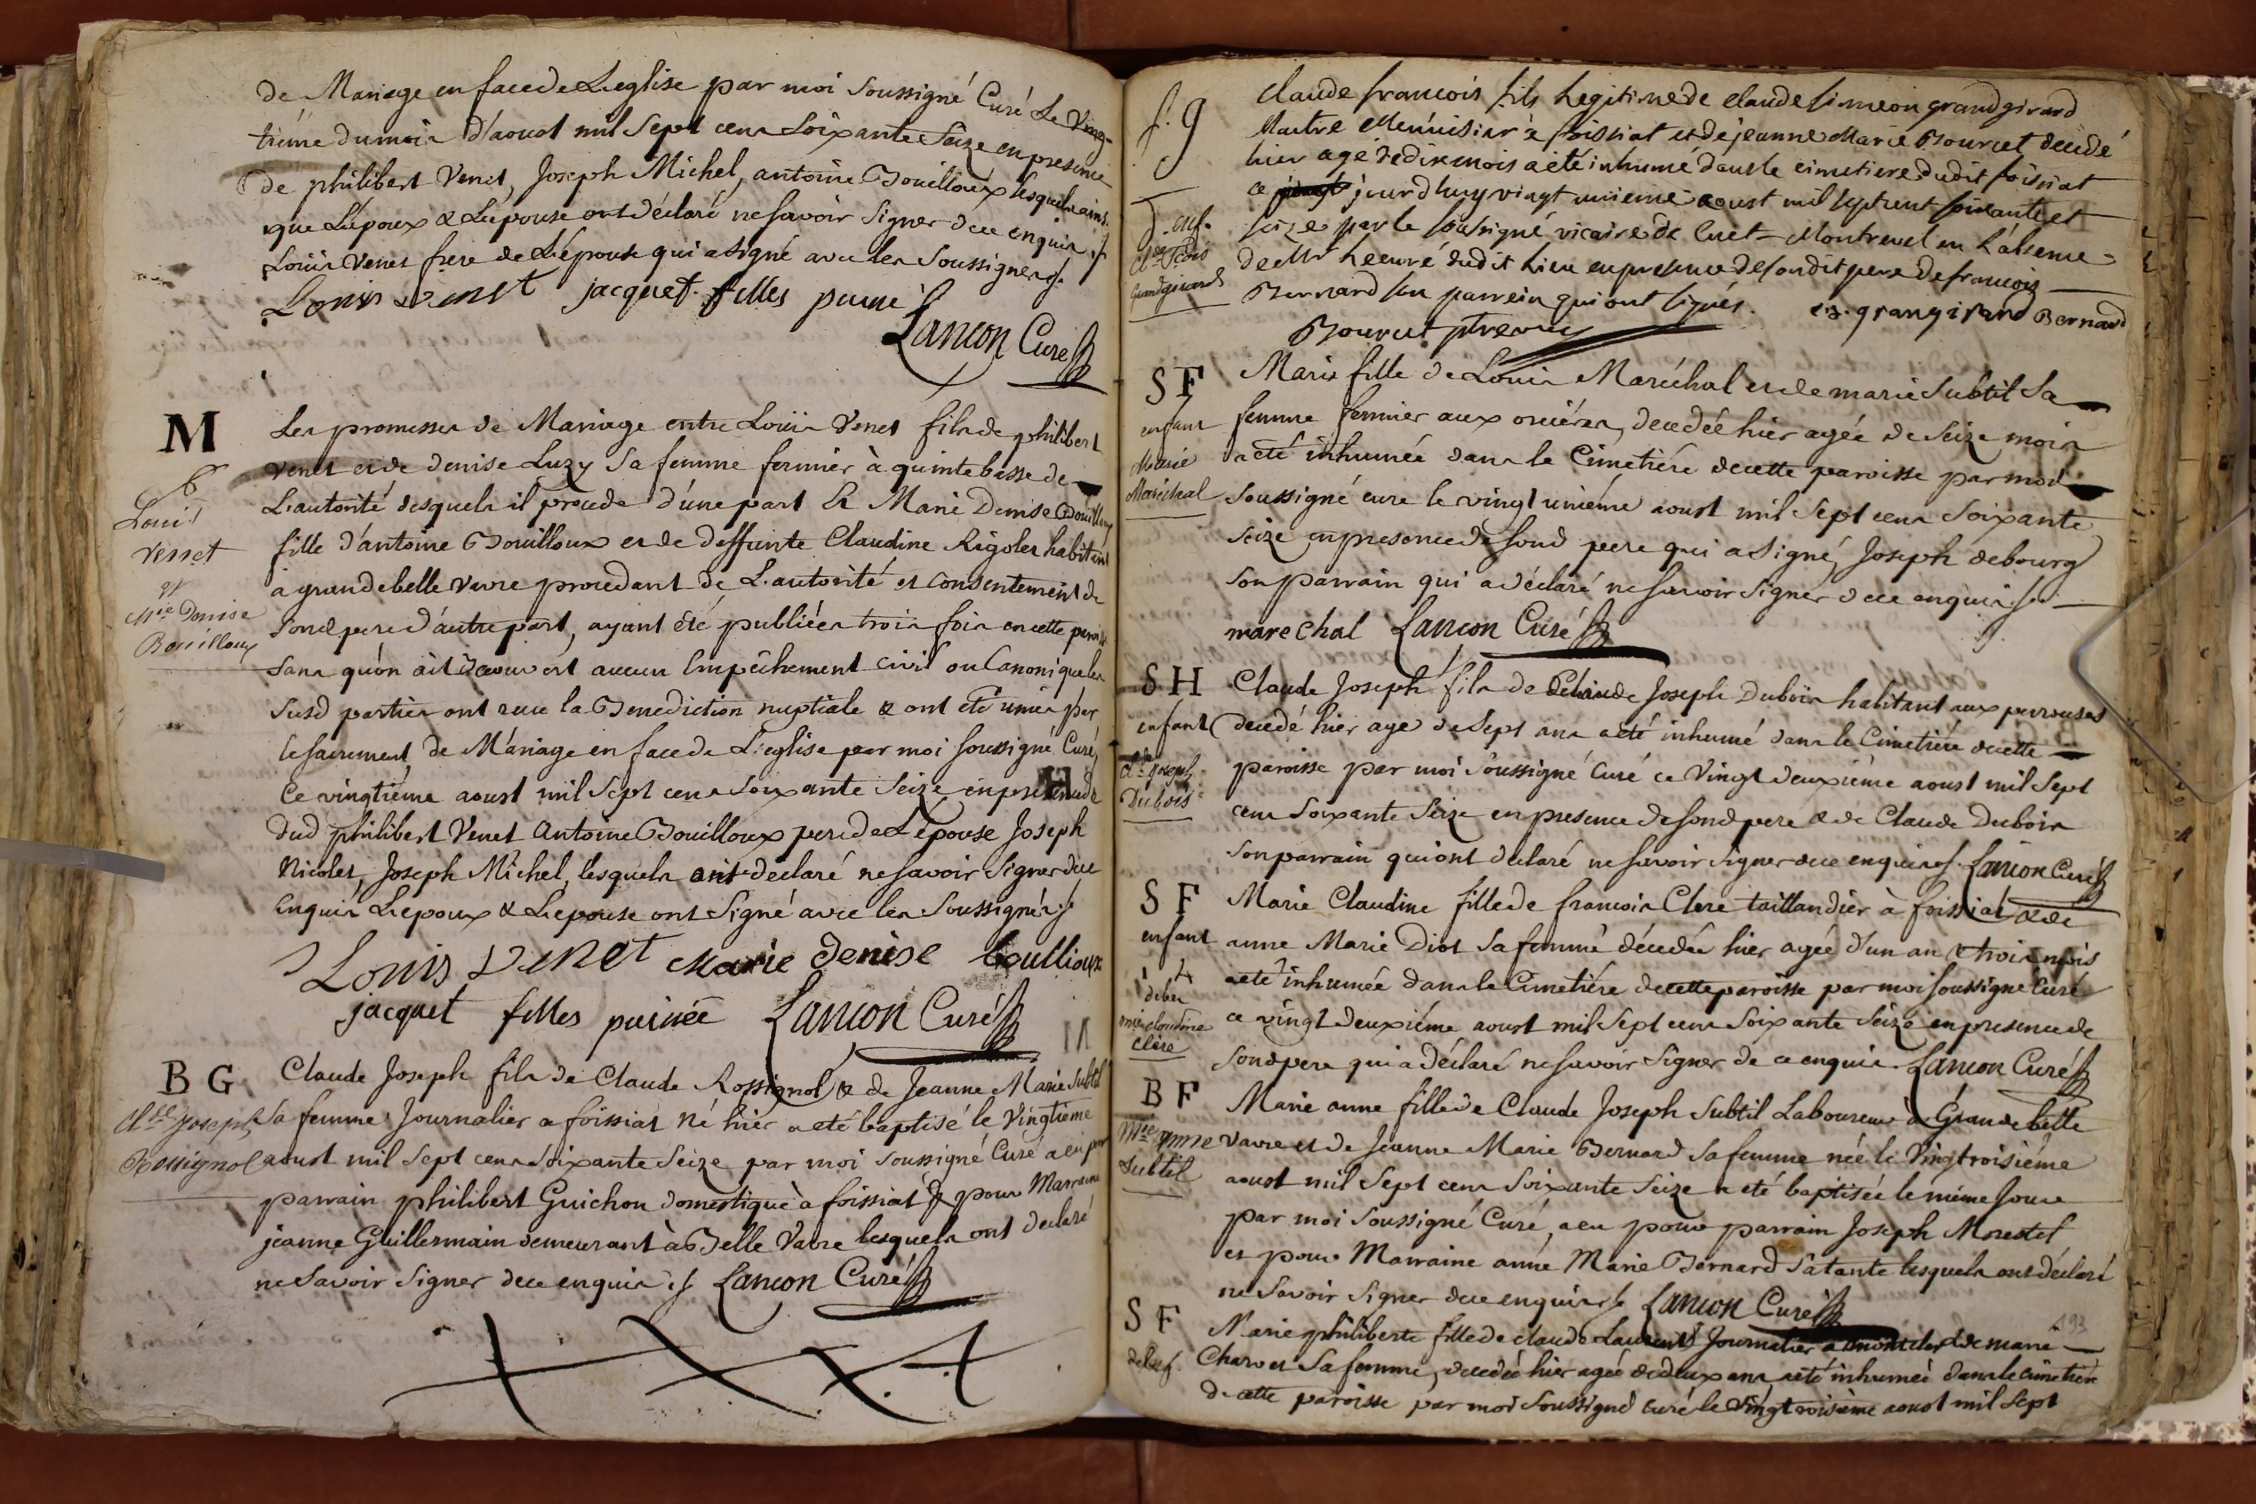 de Mariage en face de L'eglise par moi Soussigné Curé Le Ving-
tiéme du mois d'aoust mil Sept cens Soixante Seize en presence
de philibert Venet, Joseph Michel, antoine Bouilloux lesquels ains.
que L'époux & L'épouse ont déclaré ne Savoir Signer de ce enquis
Louis Venet frere de L'épouse qui a Signé avec les Soussignes
Louis venet jacquet filles puiné
Lancon Curé
M
Les promesses de Mariage entre Louis Venet fils de philibert
Venet et de denise Luzy Sa femme fermier à quintebasse de
L'autorité desquels il procede d'une part Et Marie Denise Bouilloux
fille d'antoine Bouilloux et de deffunte Claudine Rigolet habitant
a grandebelle vavre procedant de L'autorité et Consentement de
Sond pere d'autre part, ayant été publiées trois fois en cette paroisse
Sans qu'on ait decouvert aucun Empêchement Civil ou Canonique les
Susd parties ont recu la Benediction nuptiale & ont été unies par
le Sacrement de Mariage en face de L'eglise par moi Soussigné Curé
Ce vingtième aoust mil Sept cens Soixante Seize en presence
dud philibert Venet Antoine Bouilloux pere de L'epouse Joseph
Nicolet, Joseph Michel, lesquels ont déclaré ne savoir Signer de ce
Enquis L'epoux & L'epouse ont Signé avec les Soussignés
Louis
Venet
et
Mie Denise
Bouilloux
Louis Venet Marie denise boullioux
jacquet filles puinée Lancon Curé
B G
Cl.de joseph
Rossignol
Claude Joseph fils de Claude Rossignol & de Jeanne Marie Subtil
Sa femme Journalier a foissiat né hier a été baptisé le Vingtième
aoust mil Sept cens Soixante Seize par moi Soussigné Curé a eu pour
parrain philibert Guichon domestique à foissiat & pour Marraine
jeanne Guillermain demeurant à Belle Vavre lesquels ont déclaré
ne Savoir Signer de ce enquis Lancon Curé
f. g
Cl.de fcois
Grandgirard
Claude francois fils Legitime de Claude Simeon grandgirard
Maitre Menuisier à foissiat et de jeanne Marie Bourcet decédé
hier agé de dix mois a été inhumé dans le cimetiere dudit foissiat
ce jourd'huy vingt unieme aoust mil sept cent soixante et
seize par le soussigné vicaire de Cuet-Montrevel en L'absence
de Mr Le curé dudit Lieu en presence de son dit pere de francois
Bernard son parrein qui ont signés. c.s. grangirard Bernard
Bourcet ptre vic
S F
enfant
Marie
Maréchal
Marie fille de Louis Maréchal et de marie Subtil Sa
femme fermier aux oncières, decedée hier agée de Seize mois
a été inhumée dans le Cimetiére de cette paroisse par moi
Soussigné curé le vingt uniéme aoust mil Sept cens Soixante
Seize en presence de Sond pere qui a Signé, Joseph debourg
Son parrain qui a déclaré ne Savoir Signer de ce enquis
marechal Lancon Curé
S H
enfant
Cl.de joseph
Dubois
Claude Joseph fils de Claude Joseph Dubois habitant aux perrouses
decedé hier age de Sept ans a été inhumé dans le Cimetiére de cette
paroisse par moi Soussigné Curé ce Vingt deuxiéme aoust mil Sept
cens Soixante Seize en presence de Sond pere & de Claude Dubois
Son parrain qui ont declaré ne Savoir Signer de ce enquis Lancon Curé
S F
enfant
mie claudine
Clere
Marie Claudine fille de francois Clere taillandier à foissiat & de
anne Marie Diot Sa femme décédée hier agée d'un an & trois mois
a été inhumée dans le Cimetiére de cette paroisse par moi Soussigné Curé
ce vingt deuxiéme aoust mil Sept cens Soixante Seize en presence de
Sond pere qui a Déclaré ne Savoir Signer de ce enquis. Lancon Curé
B F
Mie anne
Subtil
Marie anne fille de Claude Joseph Subtil Laboureur à Grande belle
vavre et de Jeanne Marie Bernard Sa femme née le Vingtroisiéme
aoust mil Sept cens Soixante Seize a eté baptisée le même Jour
par moi Soussigné Curé, a eu pour parrain Joseph Morestel
et pour Marraine anne Marie Bernard Sa tante lesquels ont déclaré
ne Savoir Signer de ce enquis Lancon Curé
193
S F
Marie philiberte fille de claude Laurent Journalier a & de marie
Charvet Sa femme, decedée hier agée de deux ans a été inhumée dans le cimetiére
de cette paroisse par moi Soussigné curé le Vingtroisième aoust mil Sept